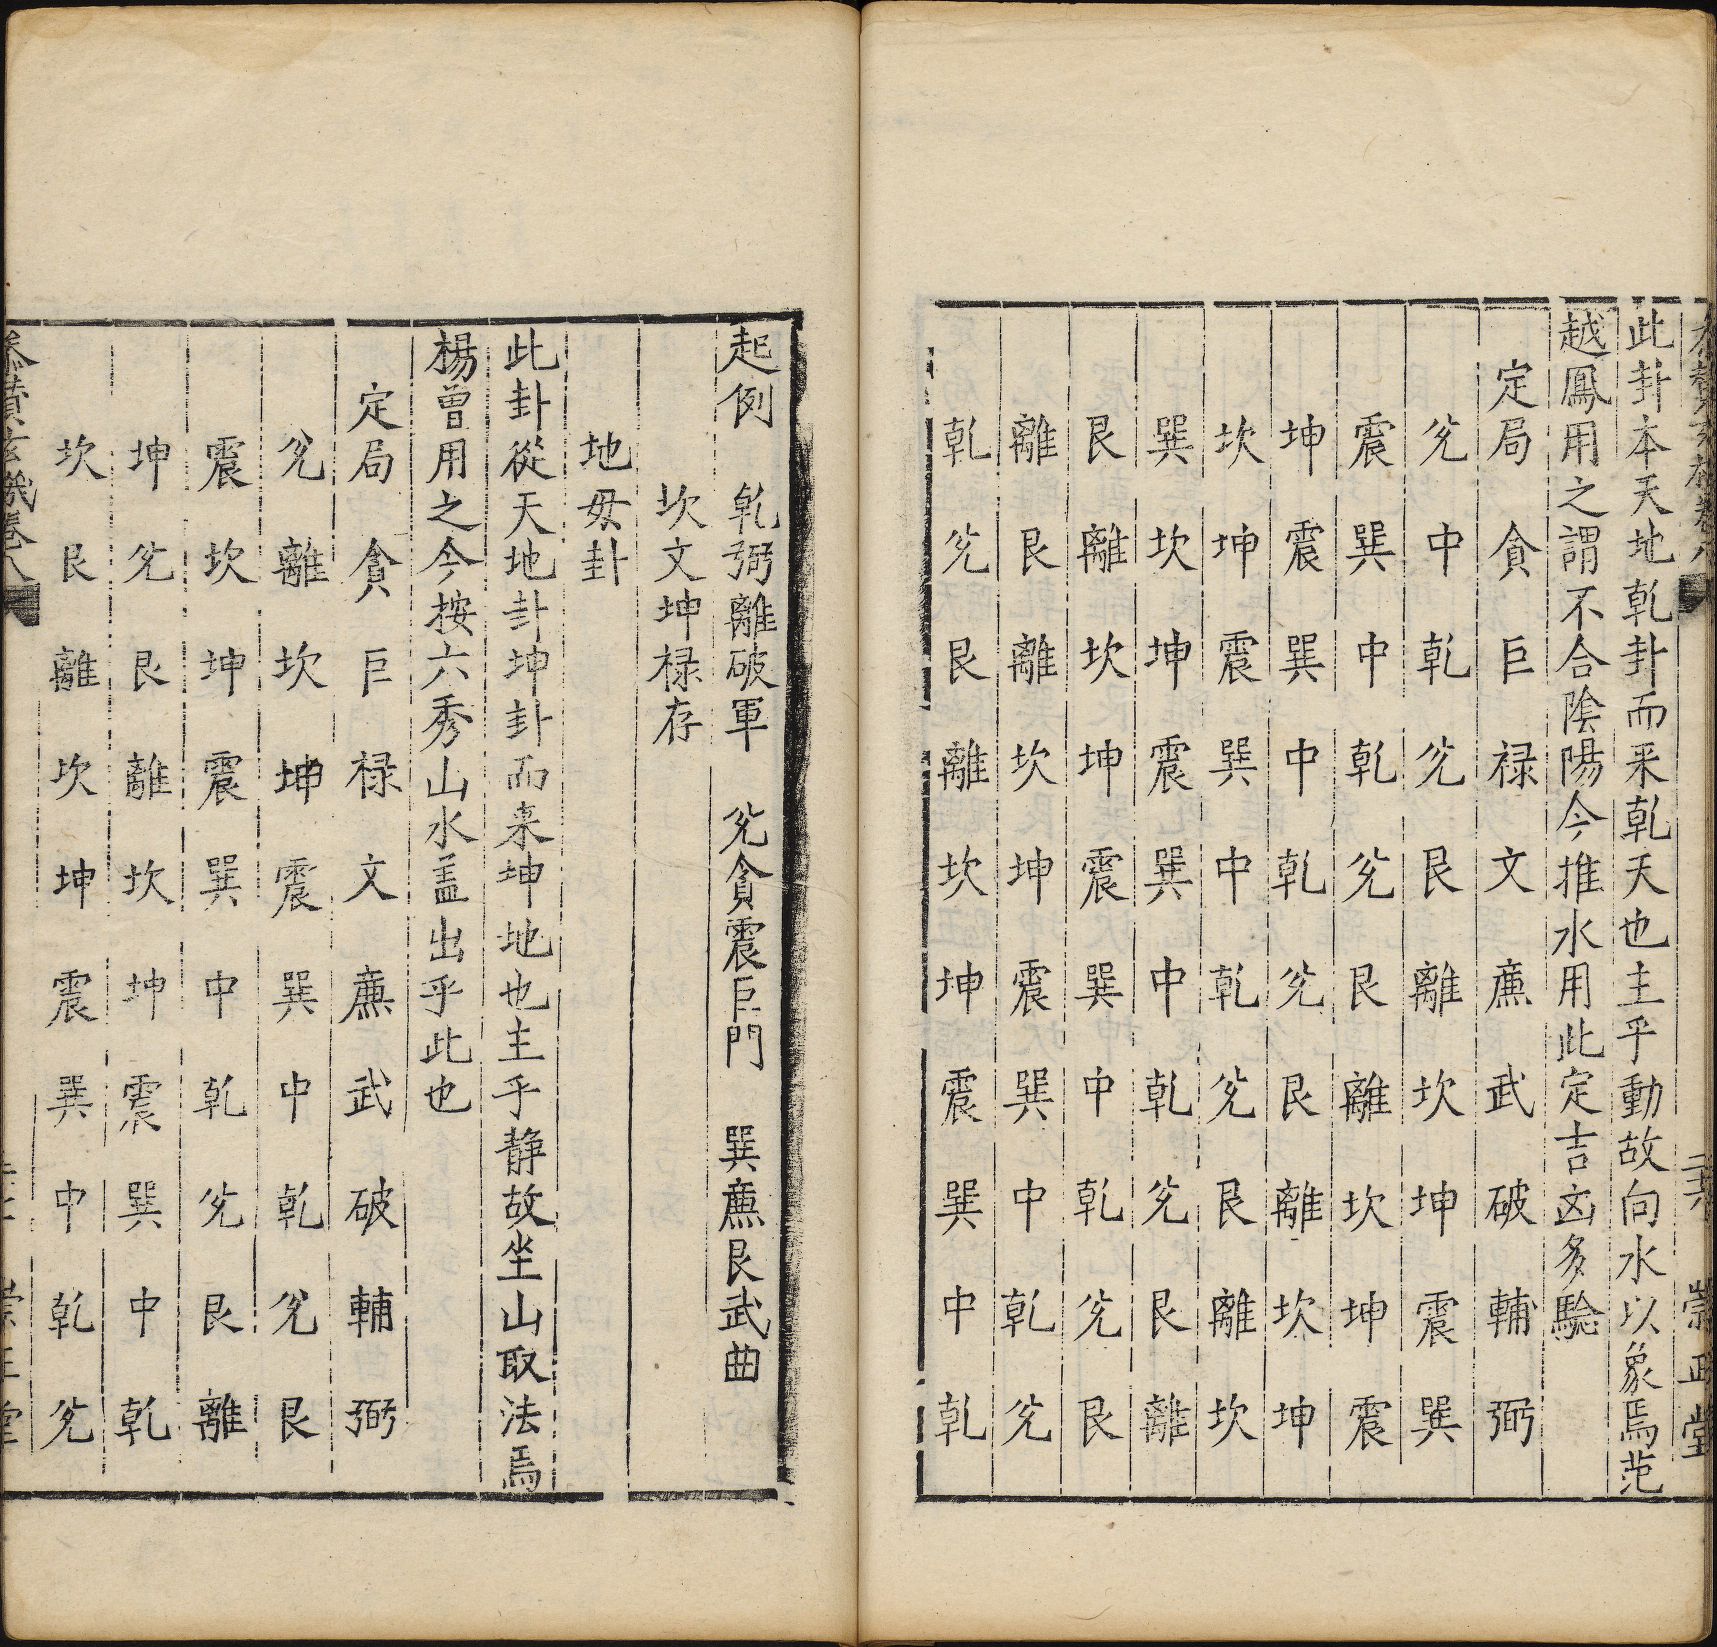 此卦本天地乾卦而來乾天也主乎動故向水以象焉范
越鳳用之謂不合陰陽今推水用此定吉凶多驗
定局 貪 巨 禄 文 亷 武 破 輔 弼
兊 中 乾 兊 艮 離 坎 坤 震 巽
震 巽 中 乾 兊 艮 離 坎 坤 震
坤 震 巽 中 乾 兊 艮 離 坎 坤
坎 坤 震 巽 中 乾 兊 艮 離 坎
巽 坎 坤 震 巽 中 乾 兊 艮 離
艮 離 坎 坤 震 巽 中 乾 兊 艮
離 艮 離 坎 坤 震 巽 中 乾 兊
乾 兊 艮 離 坎 坤 震 巽 中 乾
起例 乾弼離破軍 兊貪震巨門 巽亷艮武曲
坎文坤禄存
地毋卦
此卦從天地卦坤卦而来坤地也主乎静故坐山取法焉
楊曾用之今按六秀山水盖出乎此也
定局 貪 巨 禄 文 亷 武 破 輔 弼
兊 離 坎 坤 震 巽 中 乾 兊 艮
震 坎 坤 震 巽 中 乾 兊 艮 離
坤 兊 艮 離 坎 坤 震 巽 中 乾
坎 艮 離 坎 坤 震 巽 中 乾 兊